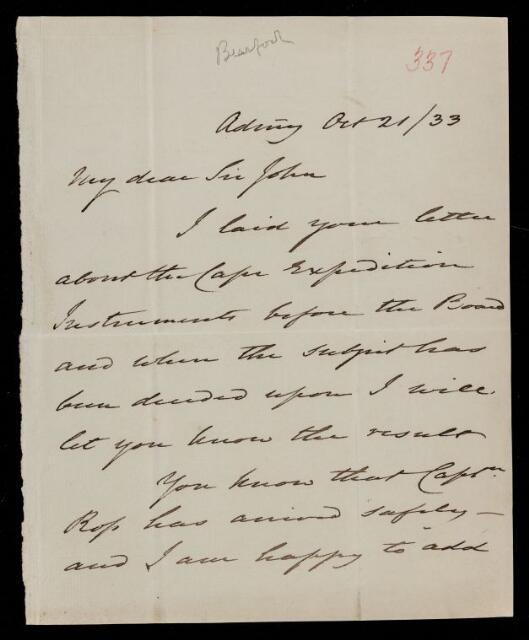 Beaufort
337
Admty Oct 21/33
My dear Sir John
I laid your letter
about the Cape Expedition
Instruments before the Board
and when the subject has
been decided upon I will
let you know the result
You know that Captn
Ross has arrived safely –
and I am happy to add